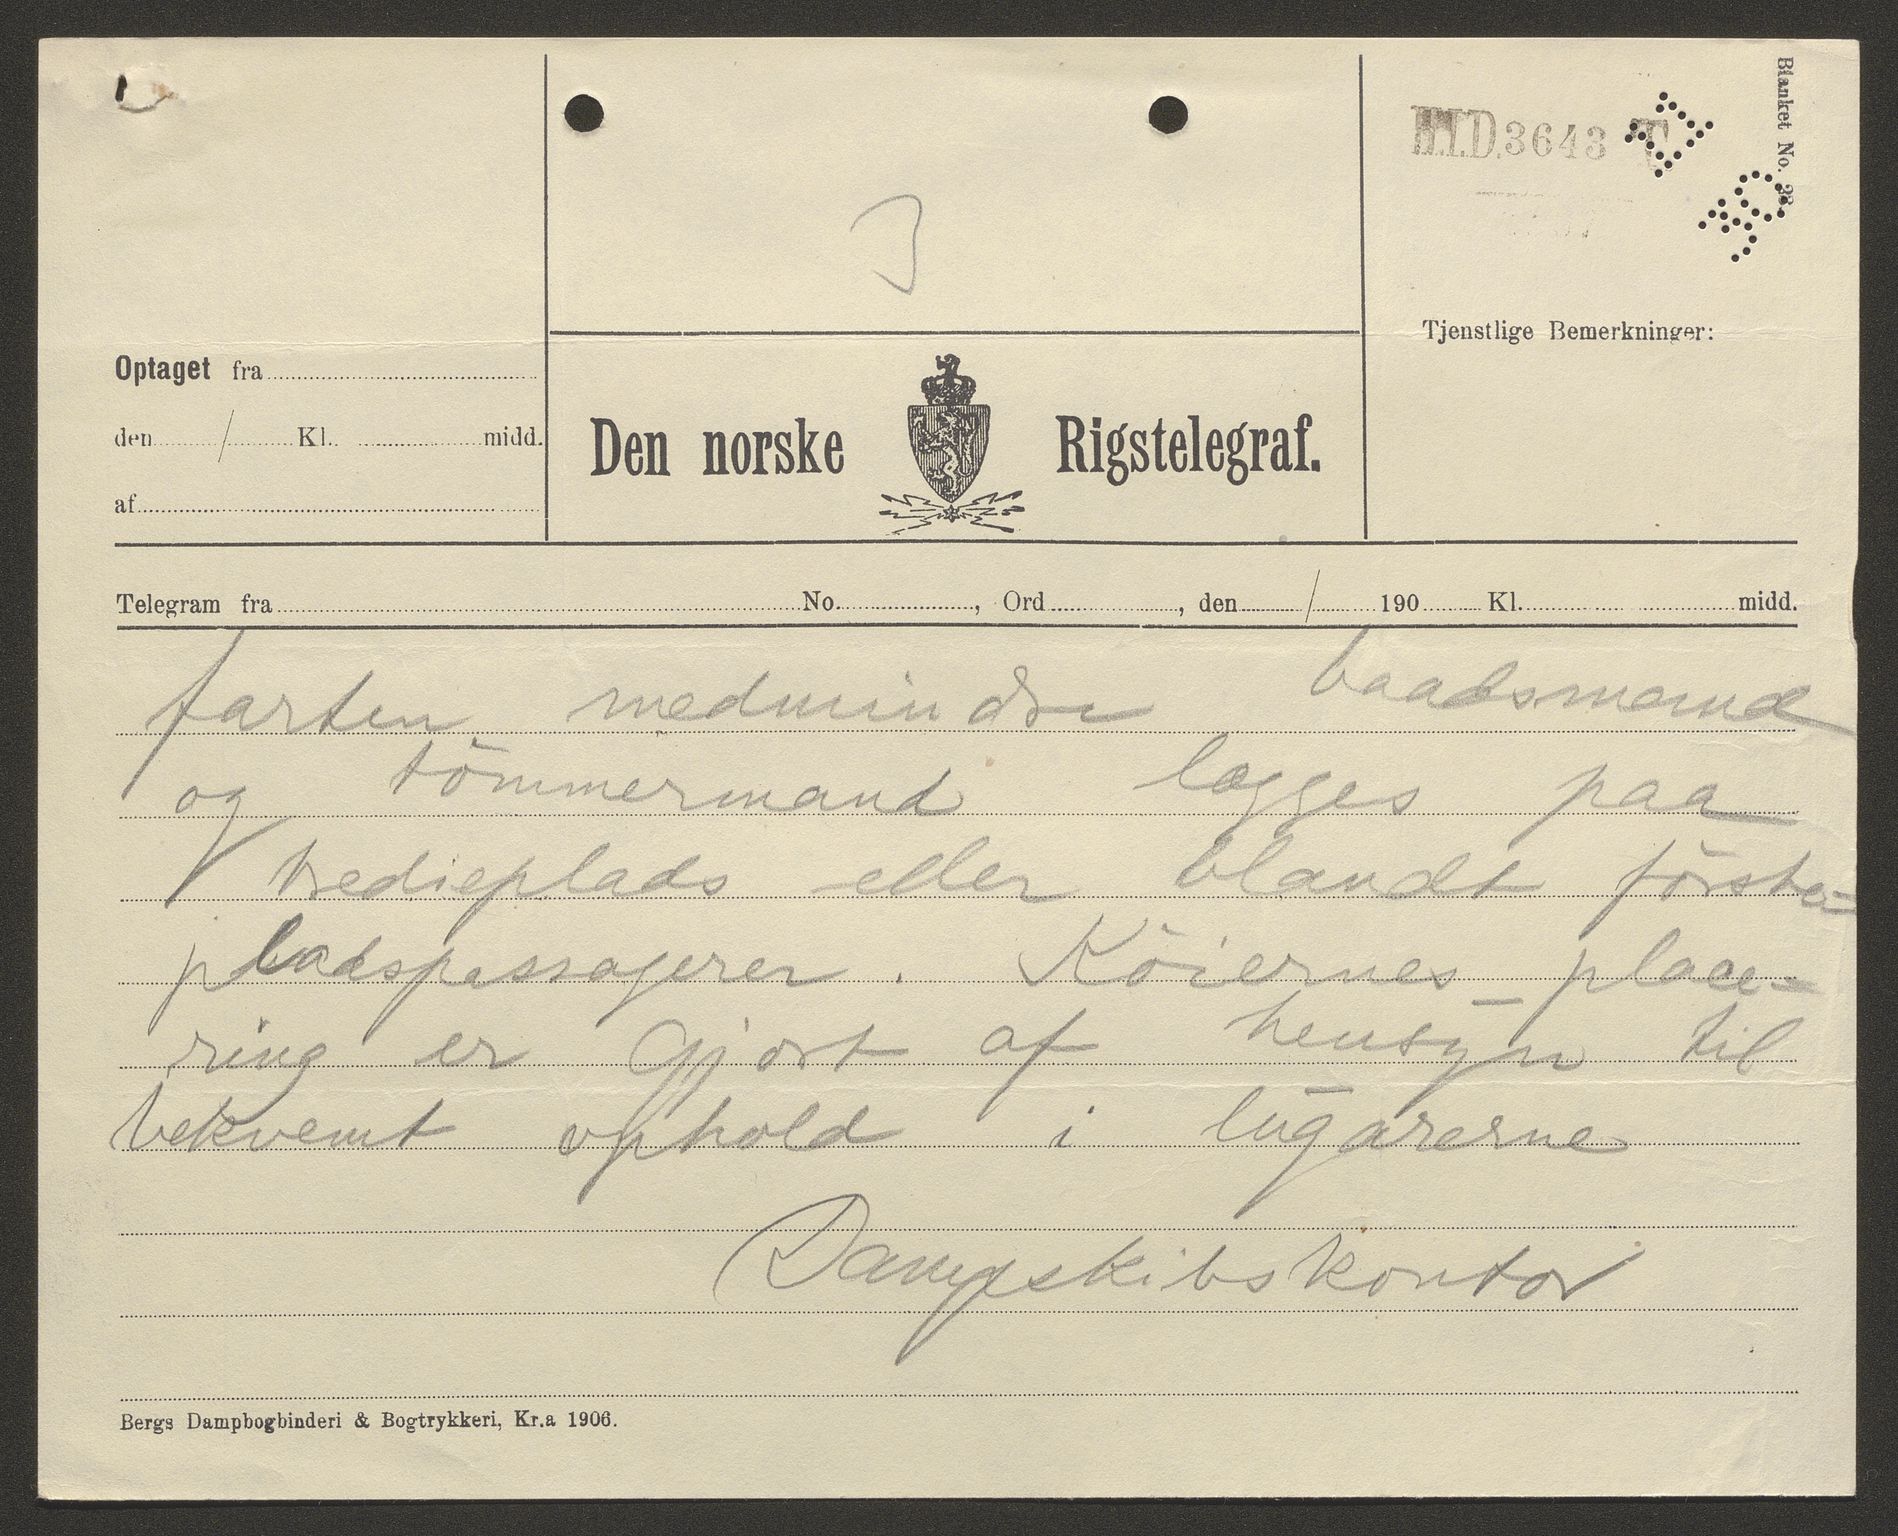 H.I.D. 3643 T
Blanket No.
3
Tjenstlige Bemerkninger:
Optaget fra
den / Kl. midd.
af
Den norske Rigstelegraf.
Telegram fra No. , Ord , den / 190 Kl. midd.
farten medmindre baadsmand
og tömmermand lægges paa
tredieplads eller blandt förste-
pladspassagerer. Köiernes place-
ring er gjort af hensyn til
bekvemt ophold i lugarerne
Dampskibskontor
Bergs Dampbogbinderi & Bogtrykkeri, Kr.a 1906.